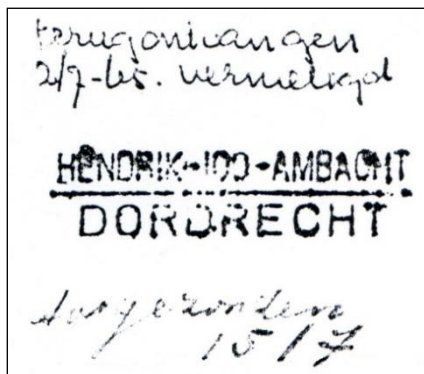 terugontvangen
2/7-65.
HENDRIK-IDO-AMBACHT
DORDRECHT
15/7